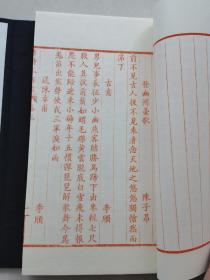 登幽州臺歌 陳子昂
前不見古人後不見來者念天地之悠悠獨愴然而
涕下
古意 李頎
男兒事長征少小幽燕客賭勝馬蹄下由來輕七尺
殺人莫敢前鬚如蝟毛磔黃雲隴底白雲飛未得報
恩不能歸遼東小婦年十五慣彈琵琶解歌舞今為
羌笛出塞聲使我三軍淚如雨
送陳章甫 李頎